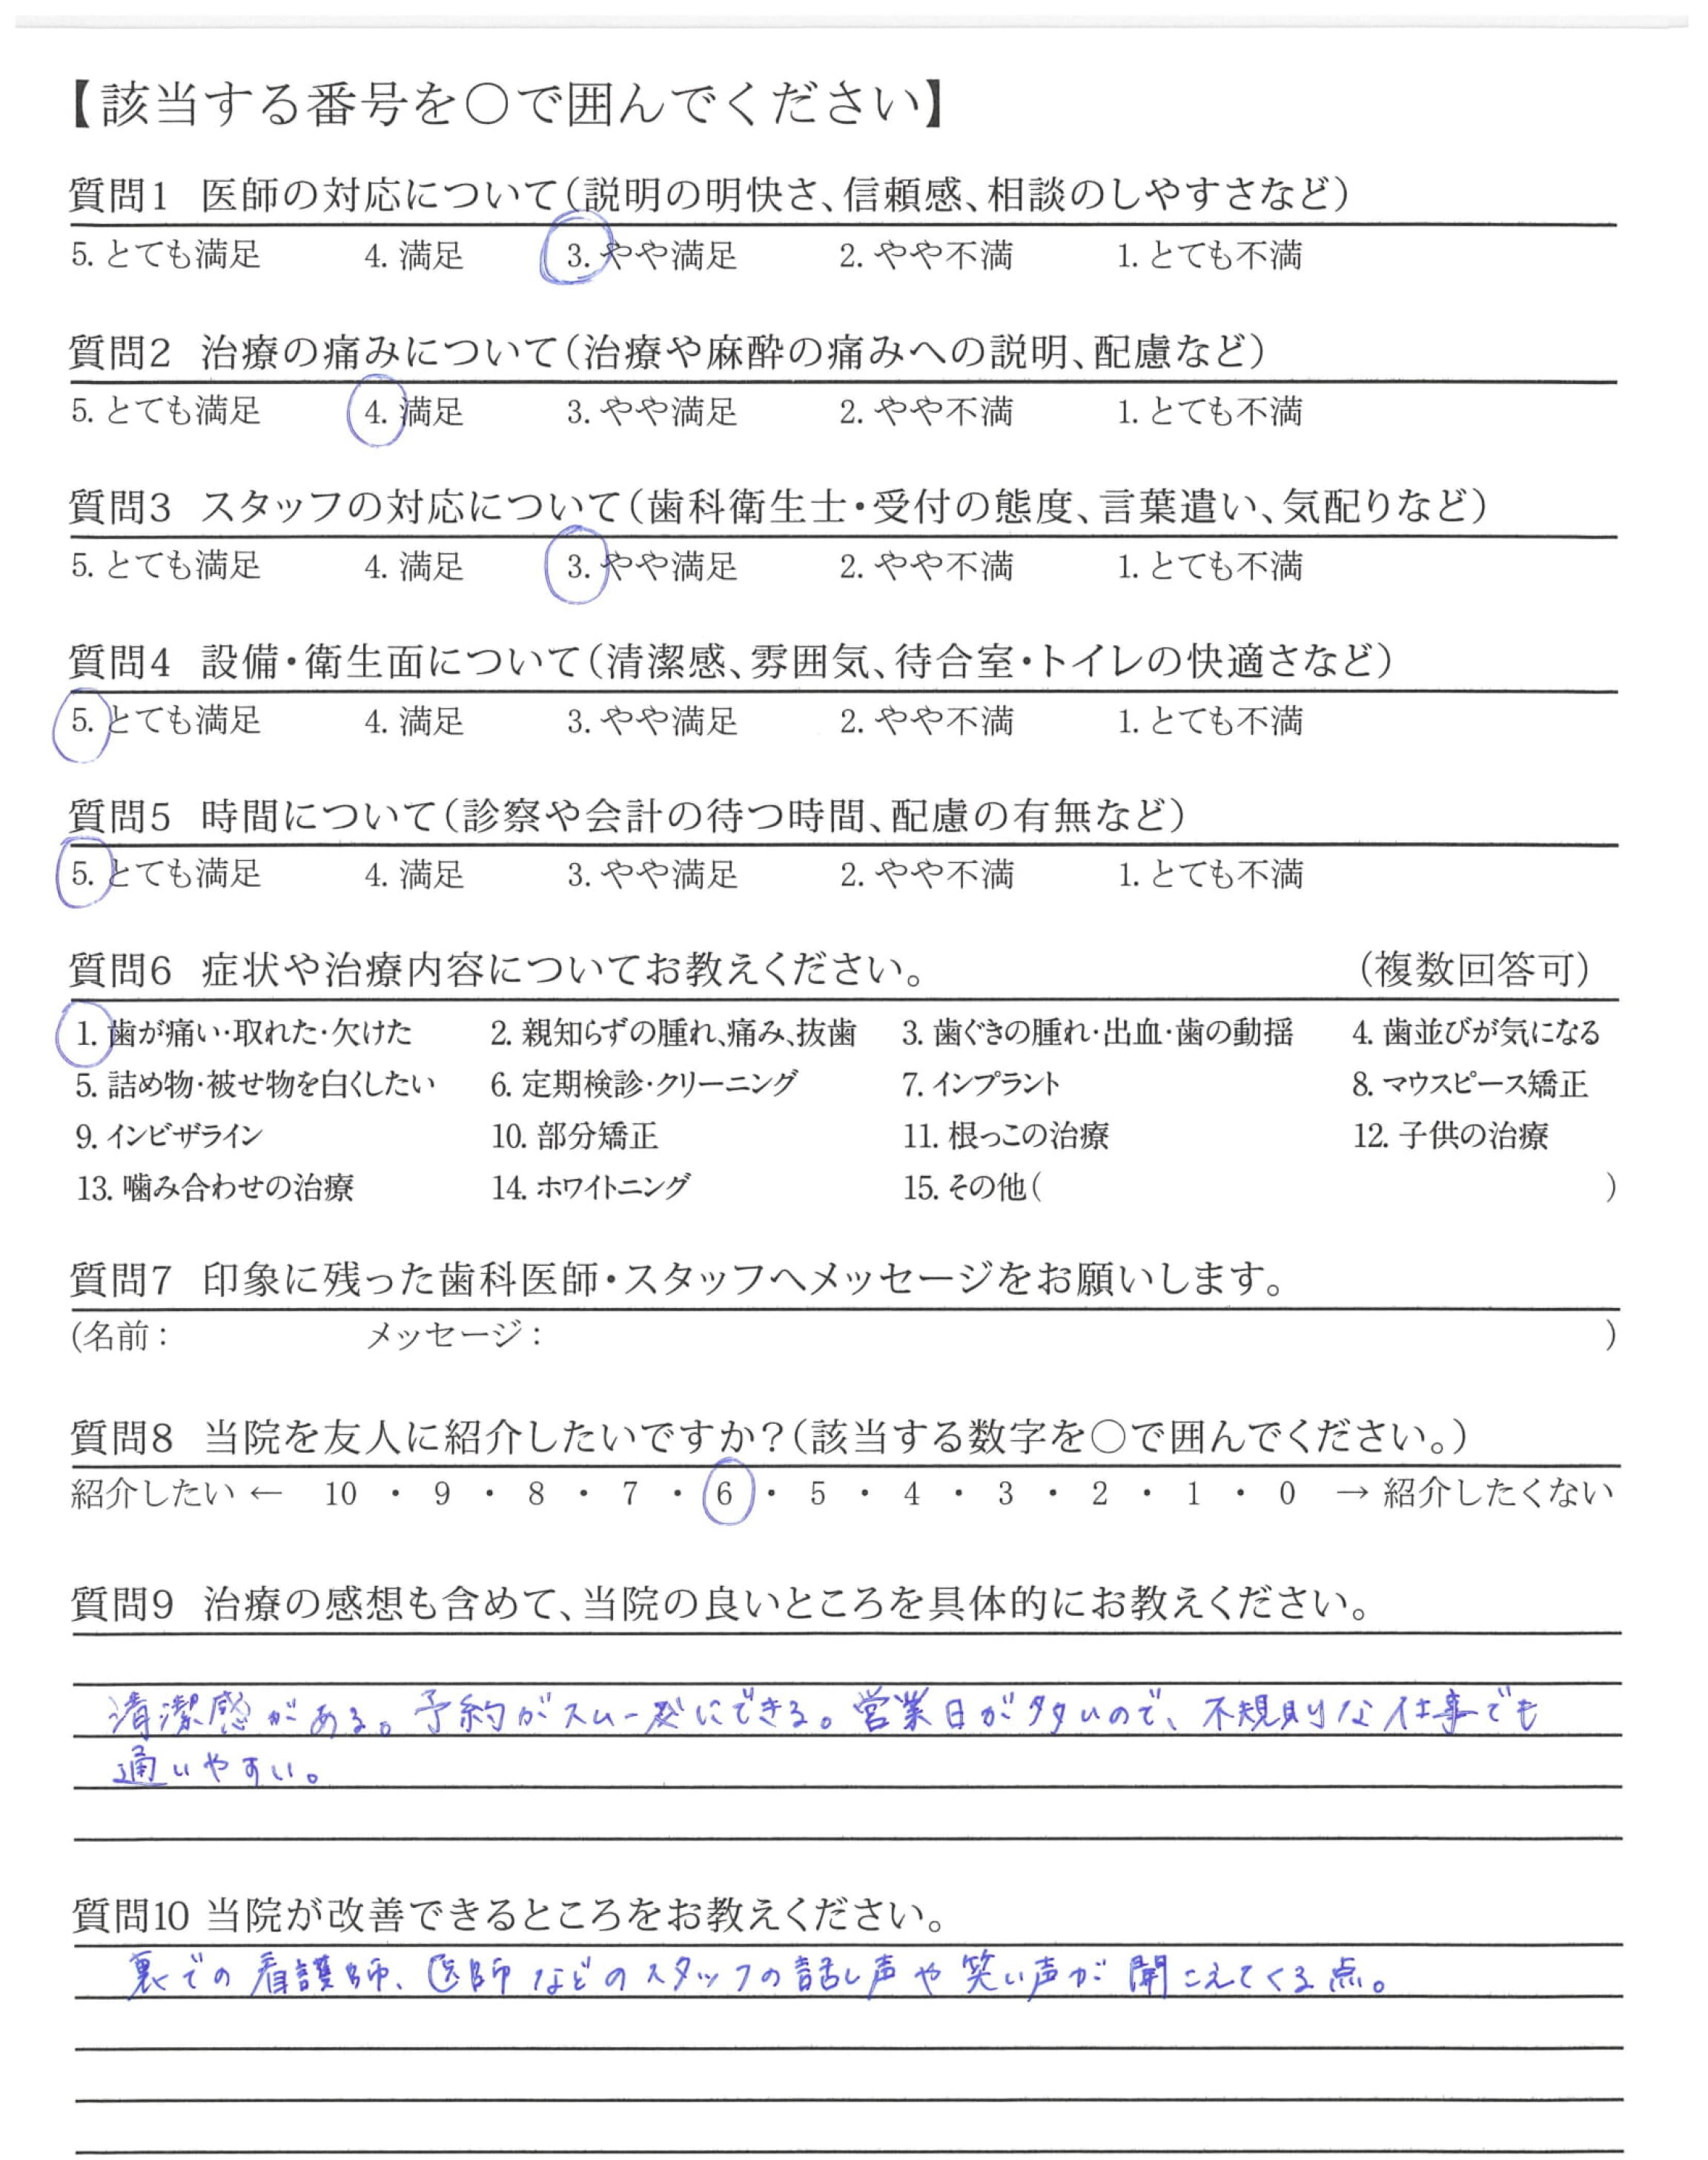 【該当する番号を〇で囲んでください】
質問1 医師の対応について（説明の明快さ、信頼感、相談のしやすさなど）
5. とても満足 4. 満足 3. やや満足 2. やや不満 1. とても不満
質問2 治療の痛みについて（治療や麻酔の痛みへの説明、配慮など）
5. とても満足 4. 満足 3. やや満足 2. やや不満 1. とても不満
質問3 スタッフの対応について（歯科衛生士・受付の態度、言葉遣い、気配りなど）
5. とても満足 4. 満足 3. やや満足 2. やや不満 1. とても不満
質問4 設備・衛生面について（清潔感、雰囲気、待合室・トイレの快適さなど）
5. とても満足 4. 満足 3. やや満足 2. やや不満 1. とても不満
質問5 時間について（診察や会計の待つ時間、配慮の有無など）
5. とても満足 4. 満足 3. やや満足 2. やや不満 1. とても不満
質問6 症状や治療内容についてお教えください。 （複数回答可）
1. 歯が痛い・取れた・欠けた 2. 親知らずの腫れ、痛み、抜歯 3. 歯ぐきの腫れ・出血・歯の動揺 4. 歯並びが気になる
5. 詰め物・被せ物を白くしたい 6. 定期検診・クリーニング 7. インプラント 8. マウスピース矯正
9. インビザライン 10. 部分矯正 11. 根っこの治療 12. 子供の治療
13. 噛み合わせの治療 14. ホワイトニング 15. その他（ ）
質問7 印象に残った歯科医師・スタッフへメッセージをお願いします。
（名前： メッセージ： ）
質問8 当院を友人に紹介したいですか？（該当する数字を〇で囲んでください。）
紹介したい ← 10 ・ 9 ・ 8 ・ 7 ・ 6 ・ 5 ・ 4 ・ 3 ・ 2 ・ 1 ・ 0 → 紹介したくない
質問9 治療の感想も含めて、当院の良いところを具体的にお教えください。
清潔感がある。予約がスムーズにできる。営業日が多いので、不規則な仕事でも
通いやすい。
質問10 当院が改善できるところをお教えください。
裏での看護師、医師などのスタッフの話し声や笑い声が聞こえてくる点。